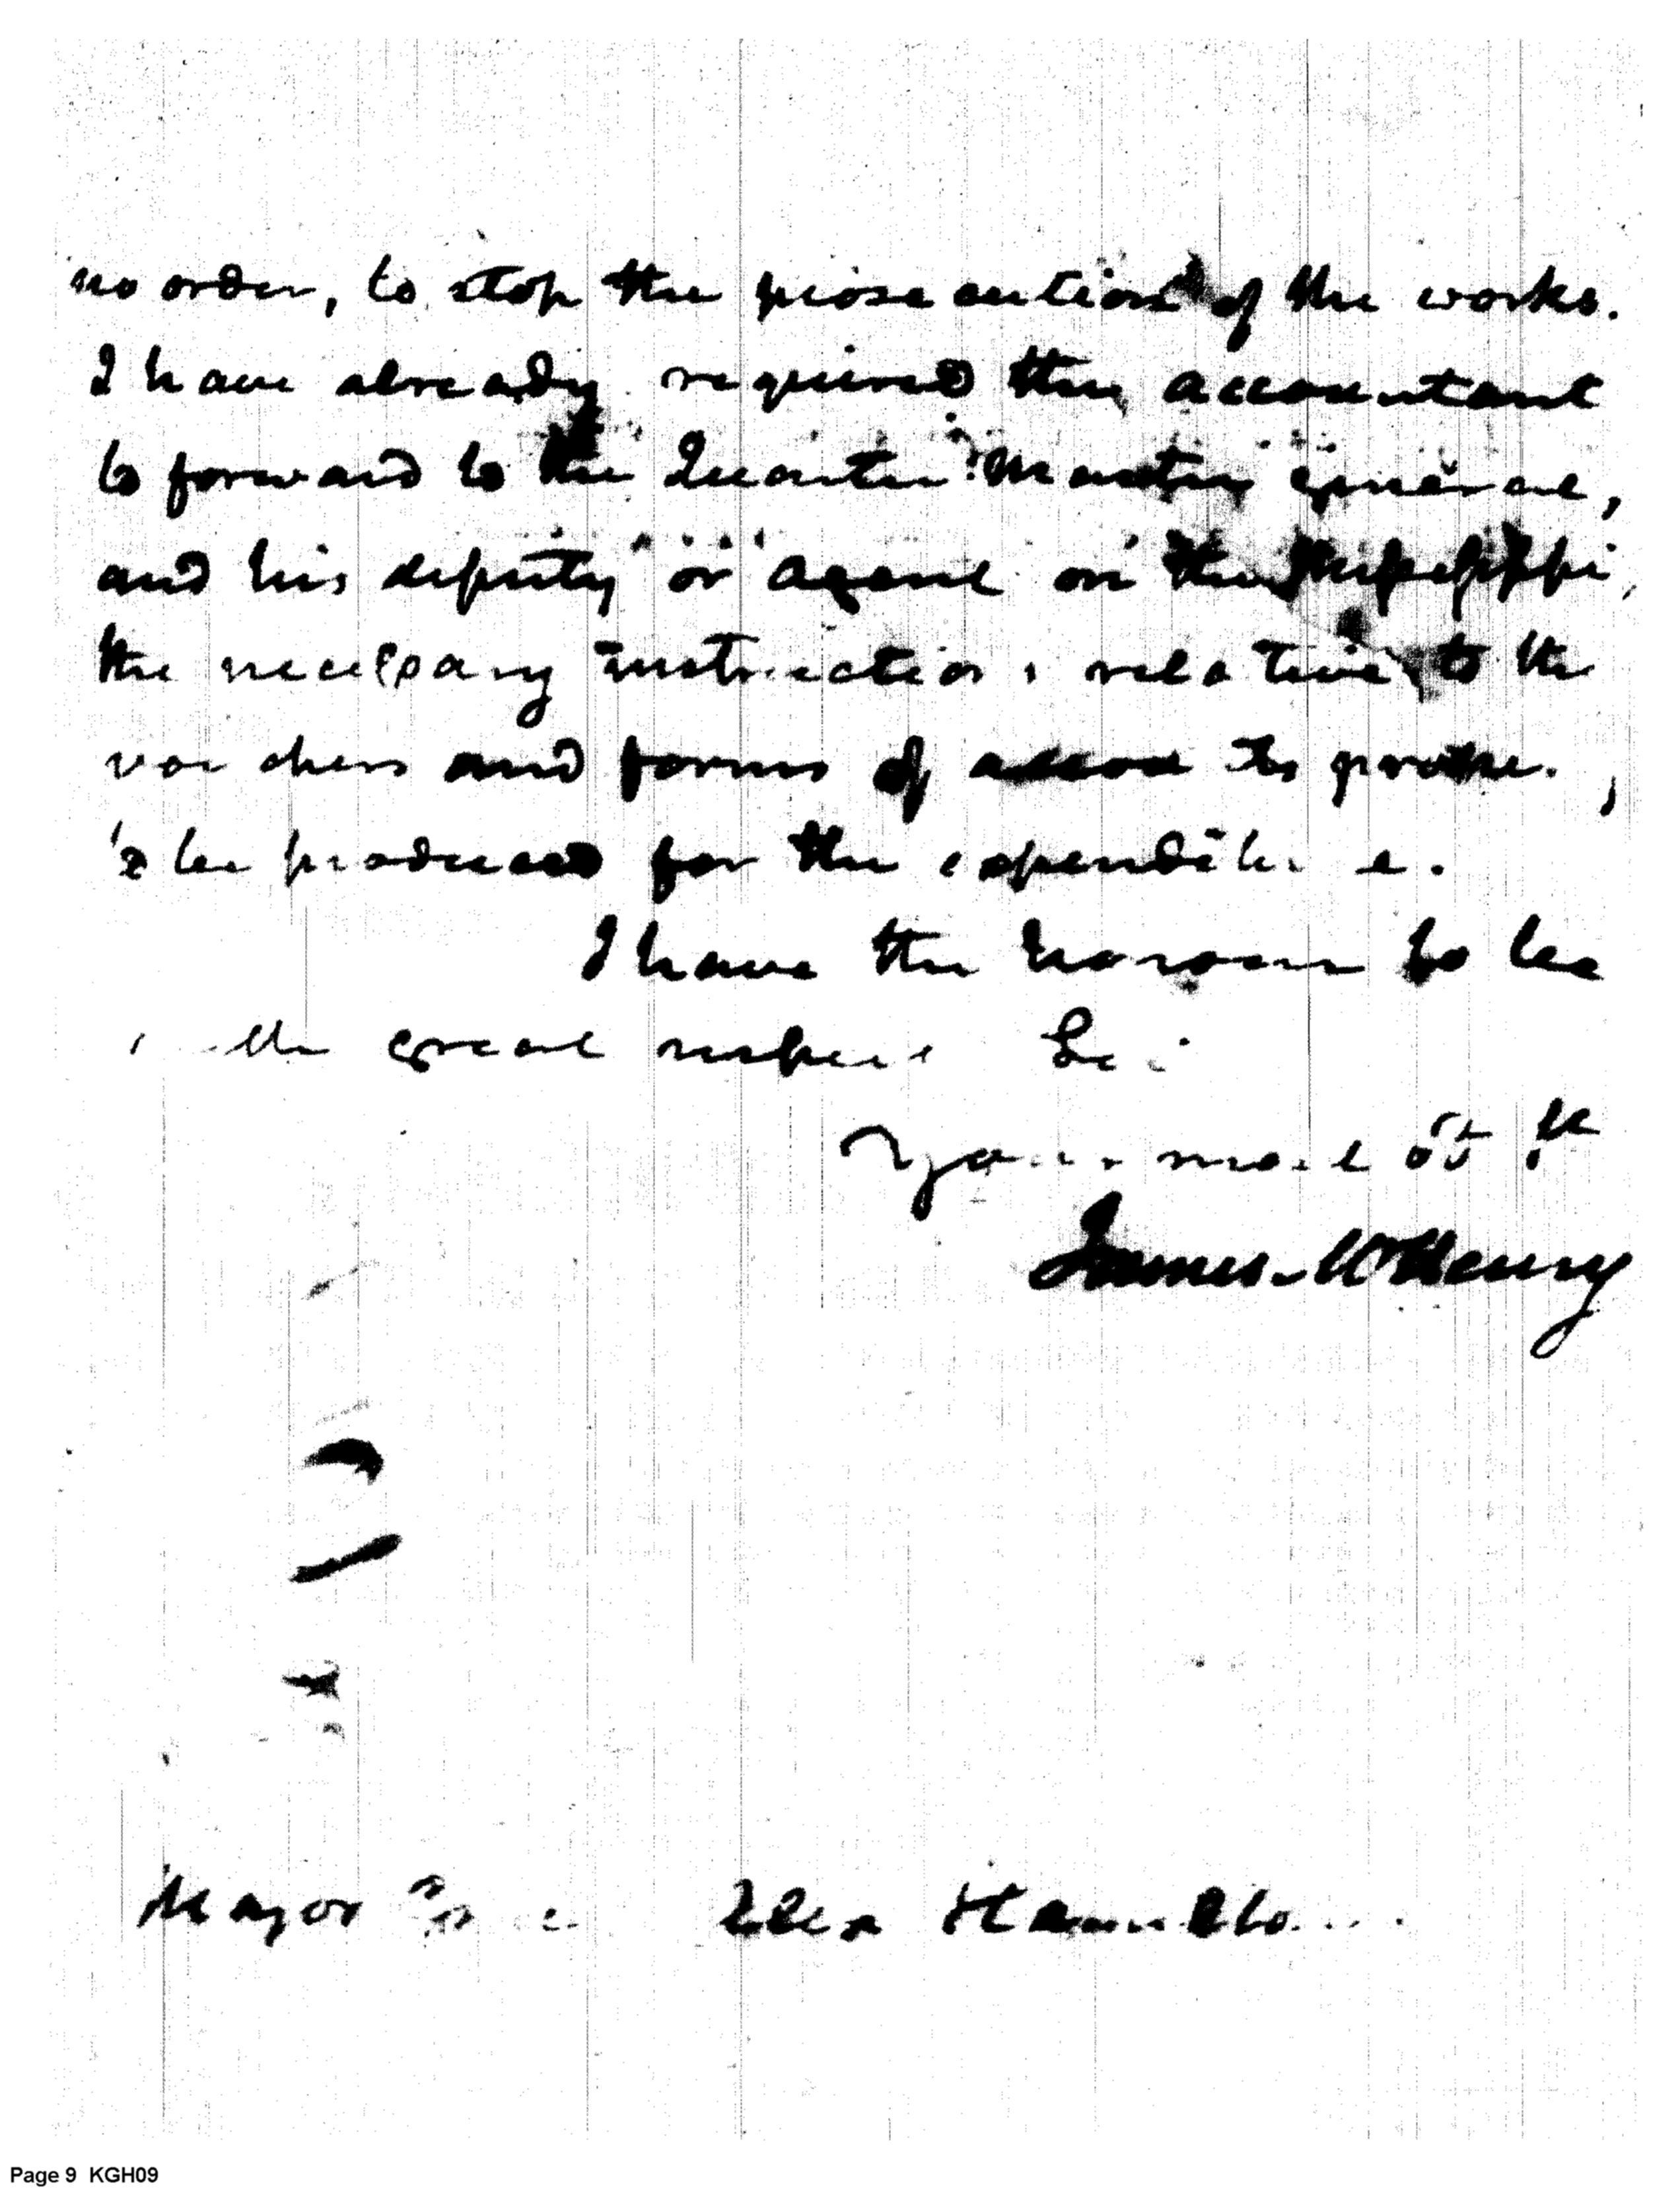 no order, to stop the prosecution of the works.
I have already required the accountant
to forward to the Quarter Master general,
and his deputy or agent on the Missisippi,
the necessary instructions relative to the
vouchers and forms of accounts
to be produced for the expenditure.
I have the honour to be
with great respect &c.
Your most ob St
James McHenry
Major Alex Hamilton
Page 9 KGH09